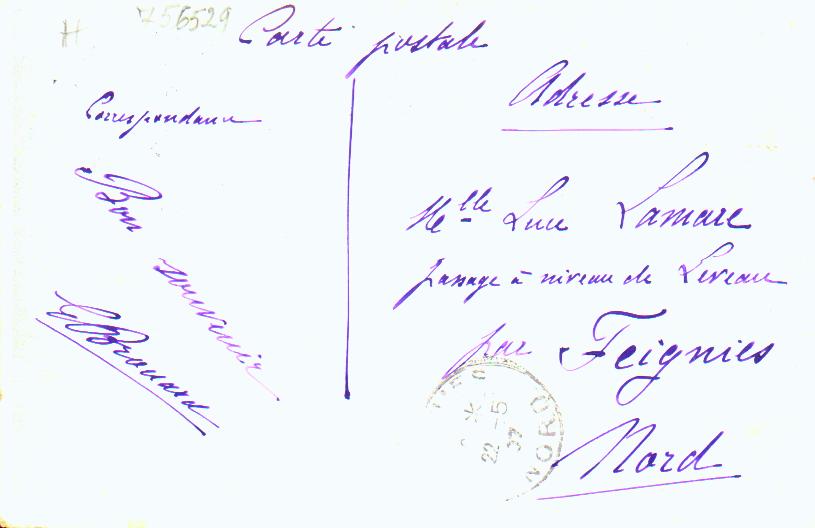 H 756529
Carte postale
Correspondance
Bon
souvenir
Brouard
Adresse
Melle Luce Lamare
passage à niveau de Leveau
par Feignies
Nord
22 -5
37
NORD